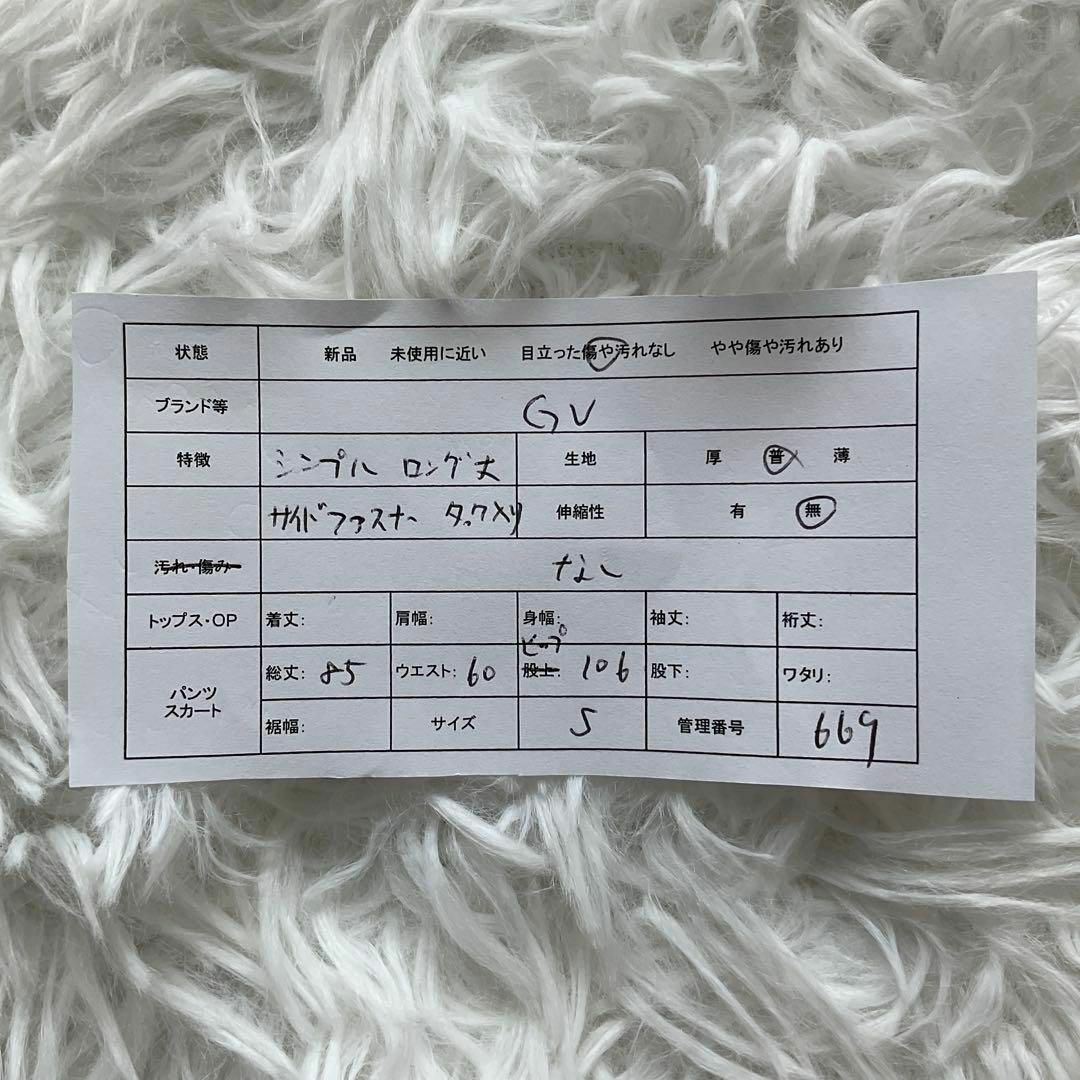 状態 新品 未使用に近い 目立った傷や汚れなし やや傷や汚れあり
ブランド等 GV
特徴 シンプル ロング丈 生地 厚 普 薄
サイドファスナー タック入り 伸縮性 有 無
汚れ・傷み なし
トップス・OP 着丈: 肩幅: 身幅: 袖丈: 裄丈:
ヒップ
パンツ スカート 総丈: 85 ウエスト: 60 股上: 106 股下: ワタリ:
裾幅: サイズ S 管理番号 669